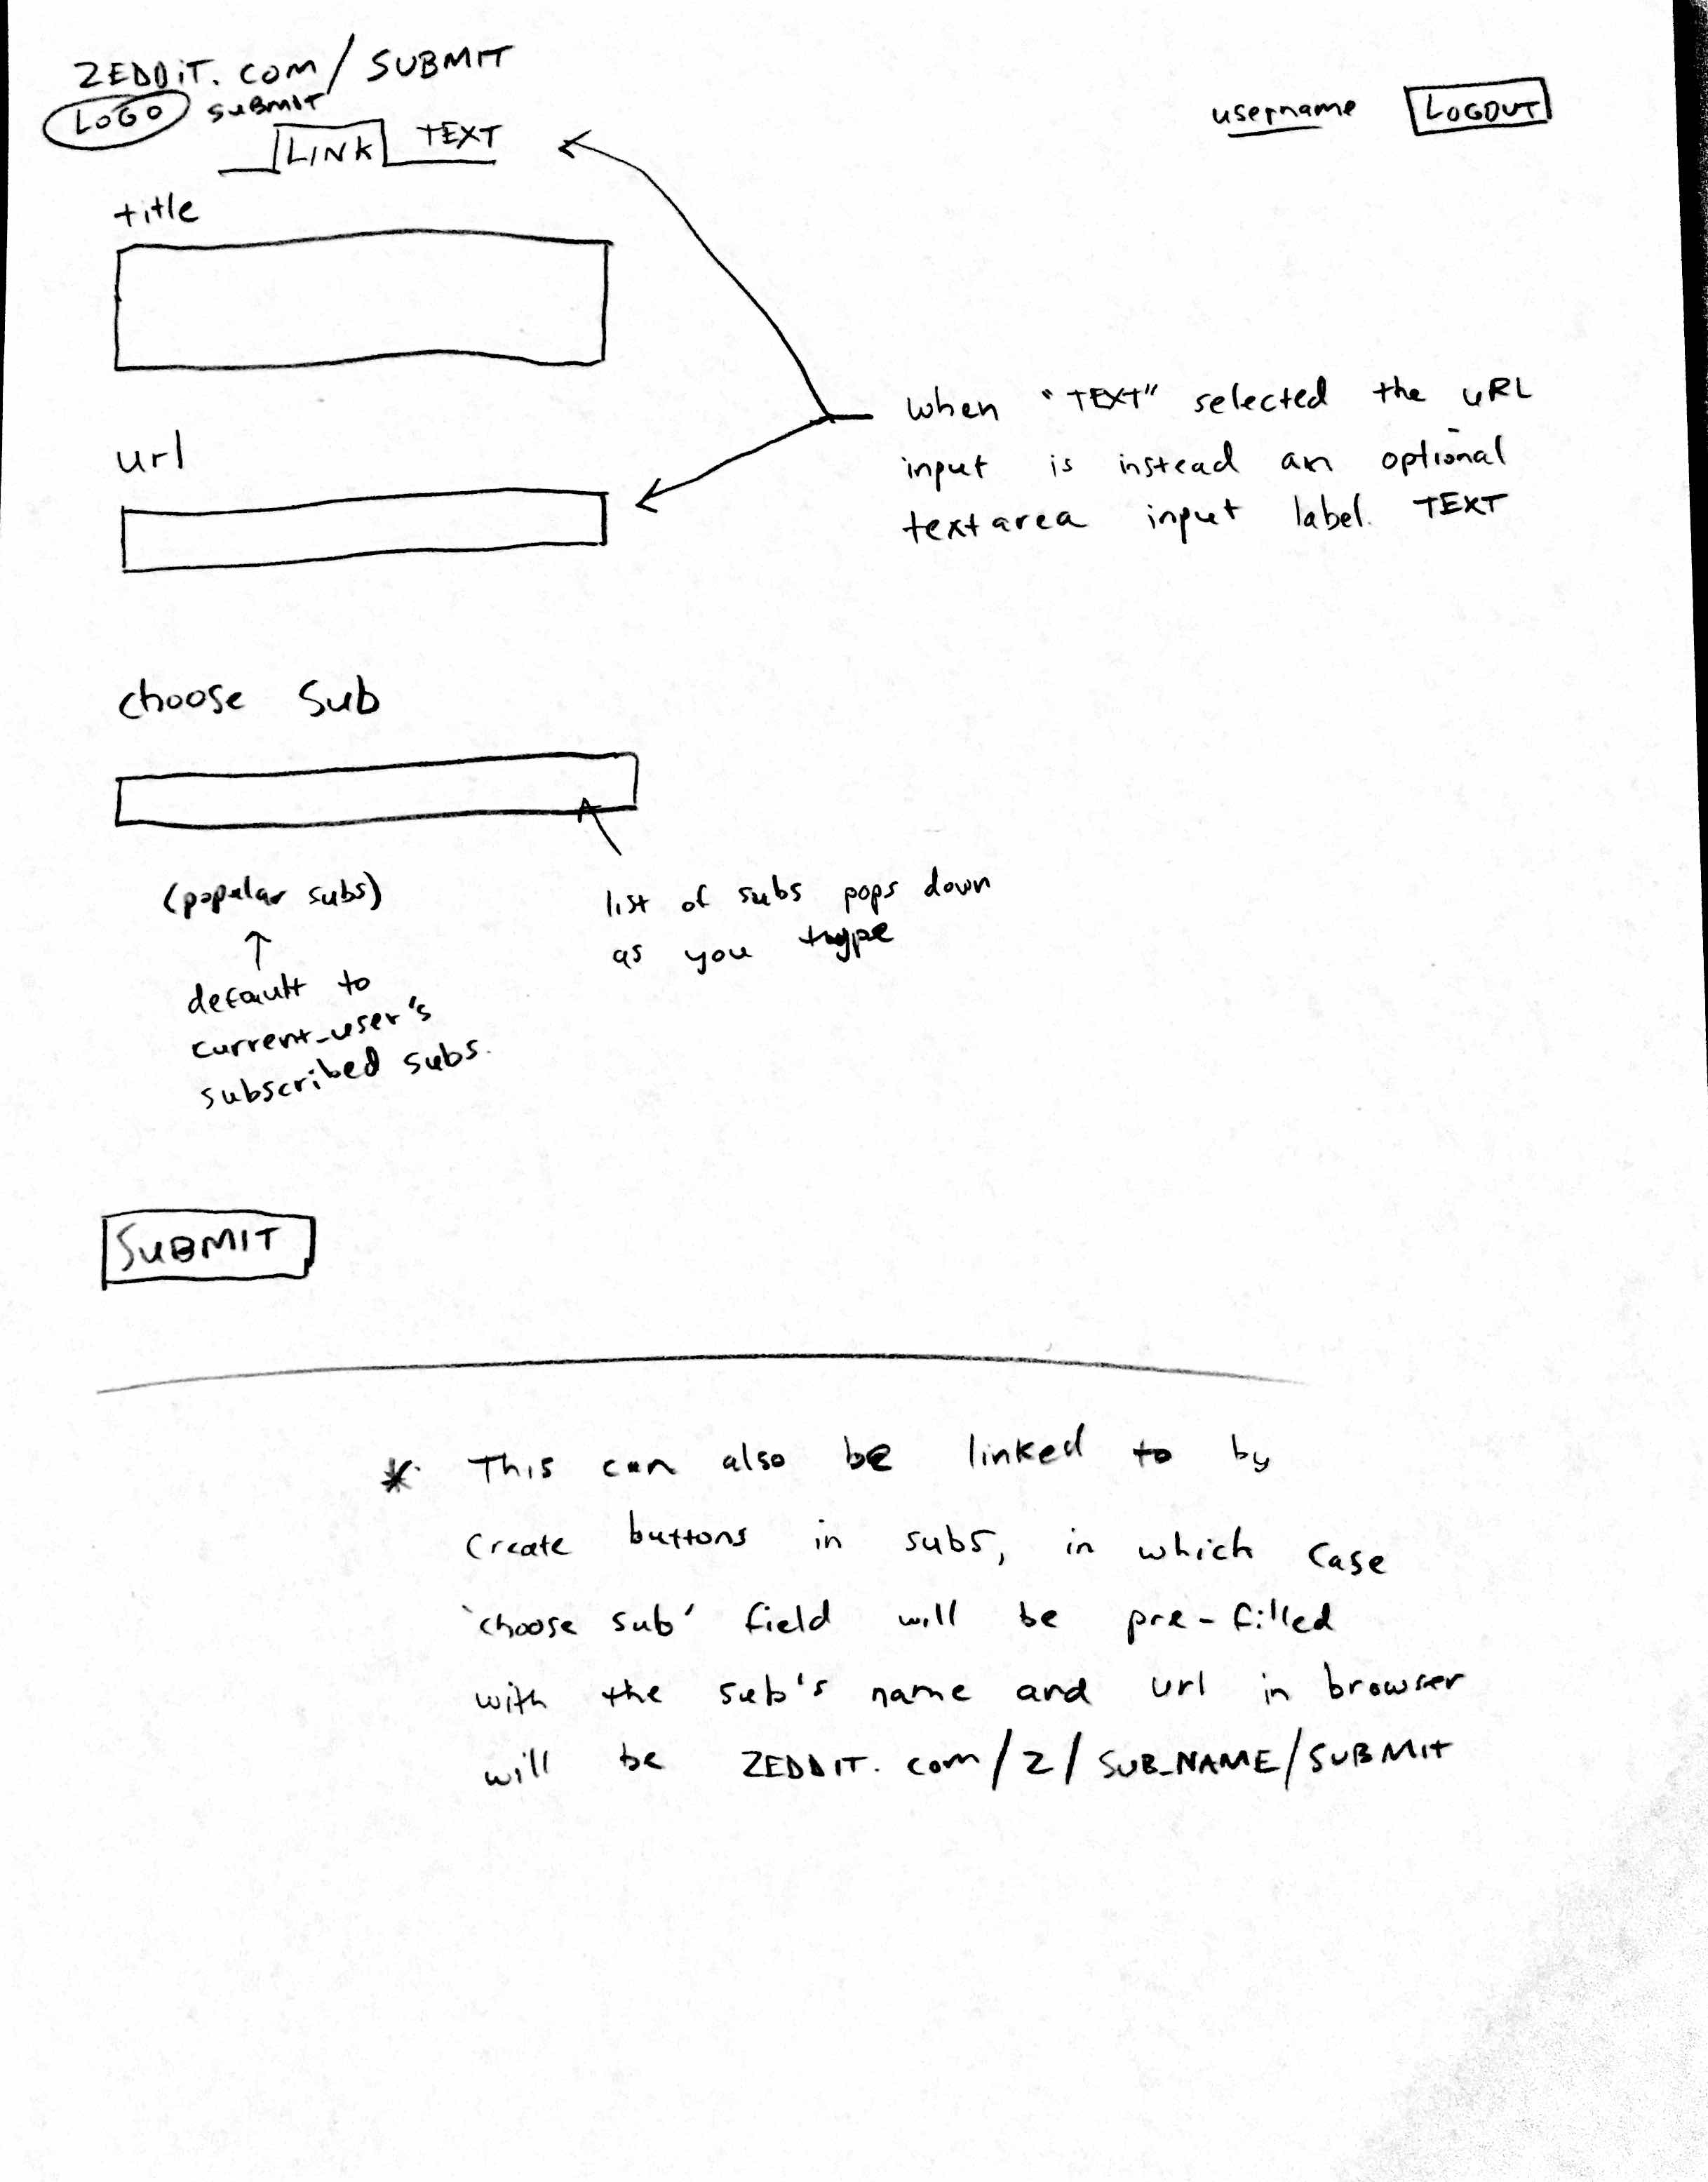 ZEDDIT.com/SUBMIT
LOGO submit
username LOGOUT
LINK TEXT
title
url
when "TEXT" selected the URL
input is instead an optional
textarea input label. TEXT
choose Sub
(popular subs)
default to
current_user's
subscribed subs.
list of subs pops down
as you type
SUBMIT
* This can also be linked to by
create buttons in subs, in which case
'choose sub' field will be pre-filled
with the sub's name and url in browser
will be ZEDDIT.com/Z/SUB_NAME/SUBMIT